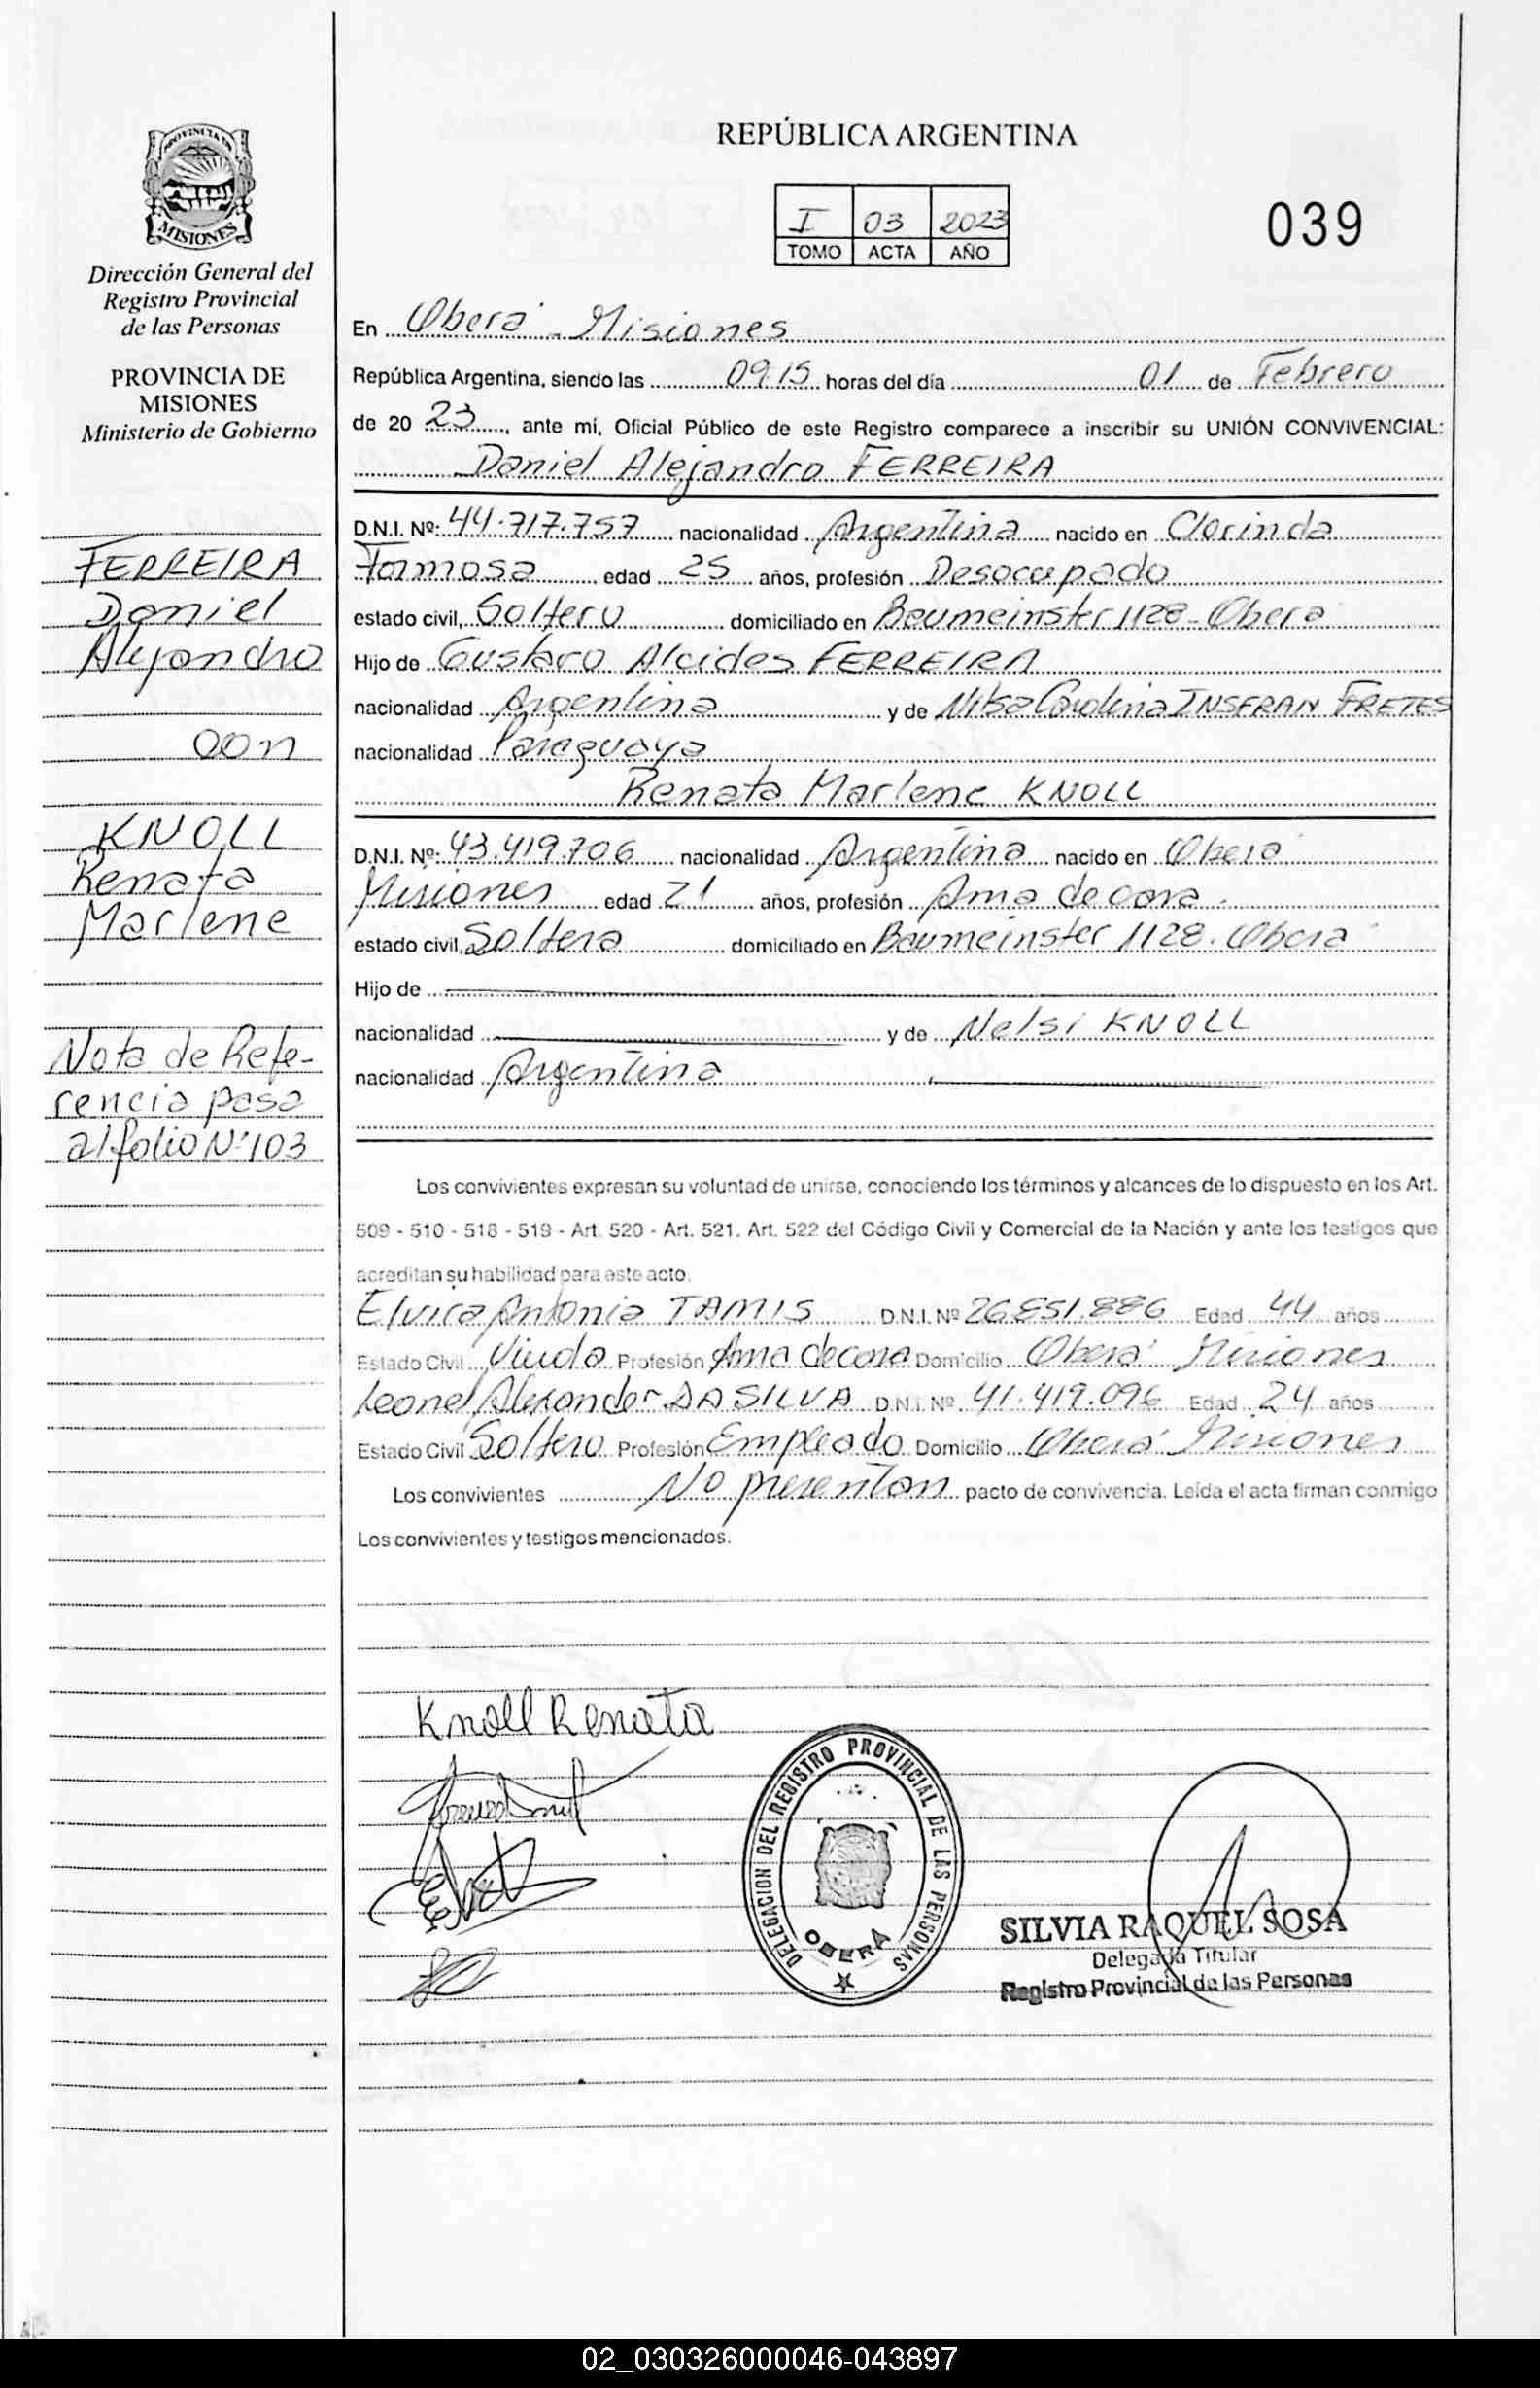 PROVINCIA DE
MISIONES
Dirección General del
Registro Provincial
de las Personas
PROVINCIA DE
MISIONES
Ministerio de Gobierno
FERREIRA
Daniel
Alejandro
con
KNOLL
Renata
Marlene
Nota de Refe-
rencia pasa
al folio Nº 103
REPÚBLICA ARGENTINA
I 03 2023
TOMO ACTA AÑO
039
En Oberá - Misiones
República Argentina, siendo las 09:15 horas del día 01 de Febrero
de 20 23, ante mí, Oficial Público de este Registro comparece a inscribir su UNIÓN CONVIVENCIAL:
Daniel Alejandro FERREIRA
D.N.I. Nº: 44.717.757 nacionalidad Argentina nacido en Clorinda
Formosa edad 25 años, profesión Desocupado
estado civil, Soltero domiciliado en Baumeinster 1128 - Oberá
Hijo de Gustavo Alcides FERREIRA
nacionalidad Argentina y de Carolina INSFRAN FRETES
nacionalidad Paraguaya
Renata Marlene KNOLL
D.N.I. Nº: 43.419.706 nacionalidad Argentina nacido en Oberá
Misiones edad 21 años, profesión Ama de casa.
estado civil, Soltera domiciliado en Baumeinster 1128. Oberá
Hijo de
nacionalidad y de Nelsi KNOLL
nacionalidad Argentina
Los convivientes expresan su voluntad de unirse, conociendo los términos y alcances de lo dispuesto en los Art.
509 - 510 - 518 - 519 - Art. 520 - Art. 521. Art. 522 del Código Civil y Comercial de la Nación y ante los testigos que
acreditan su habilidad para este acto.
Elvira Antonia TAMIS D.N.I. Nº 26.851.886 Edad 44 años
Estado Civil Viuda Profesión Ama de casa Domicilio Oberá Misiones
Leonel Alexander DA SILVA D.N.I. Nº 41.419.096 Edad 24 años
Estado Civil Soltero Profesión Empleado Domicilio Oberá Misiones
Los convivientes No presentan pacto de convivencia. Leída el acta firman conmigo
Los convivientes y testigos mencionados.
Knoll Renata
DELEGACION DEL REGISTRO PROVINCIAL DE LAS PERSONAS
OBERÁ
SILVIA RAQUEL SOSA
Delegada Titular
Registro Provincial de las Personas
02_030326000046-043897